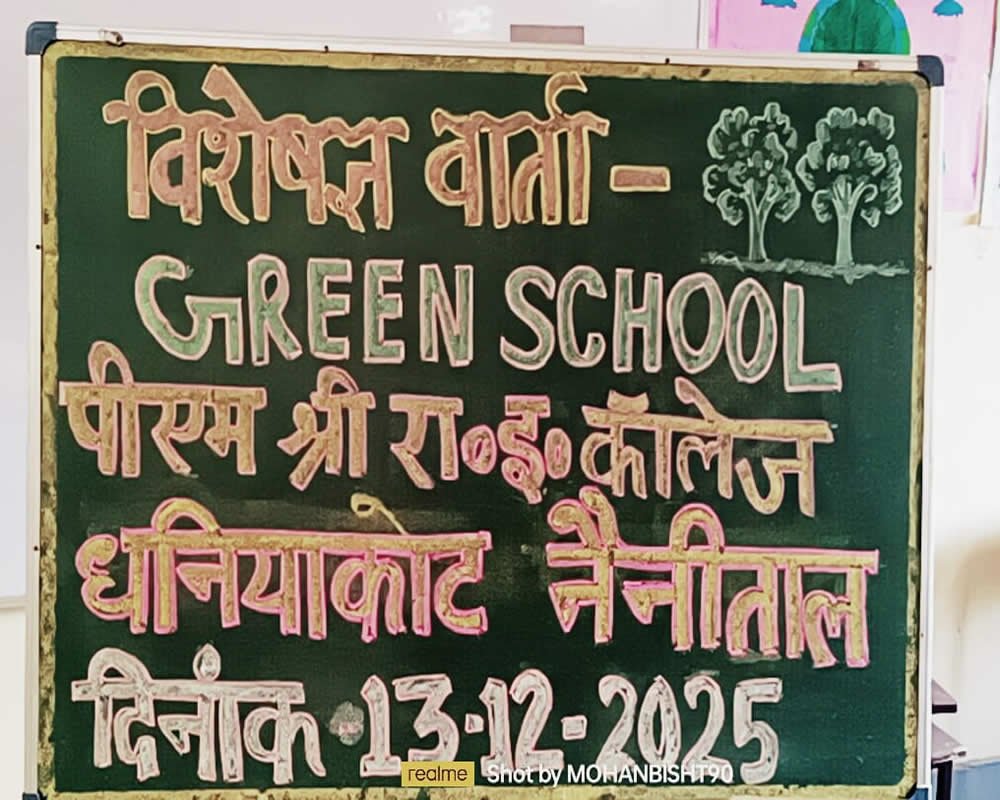 विशेषज्ञ वार्ता -
GREEN SCHOOL
पीएम श्री रा॰इ॰कॉलेज
धनियाकोट नैनीताल
दिनांक 13-12-2025
realme Shot by MOHANBISHT90